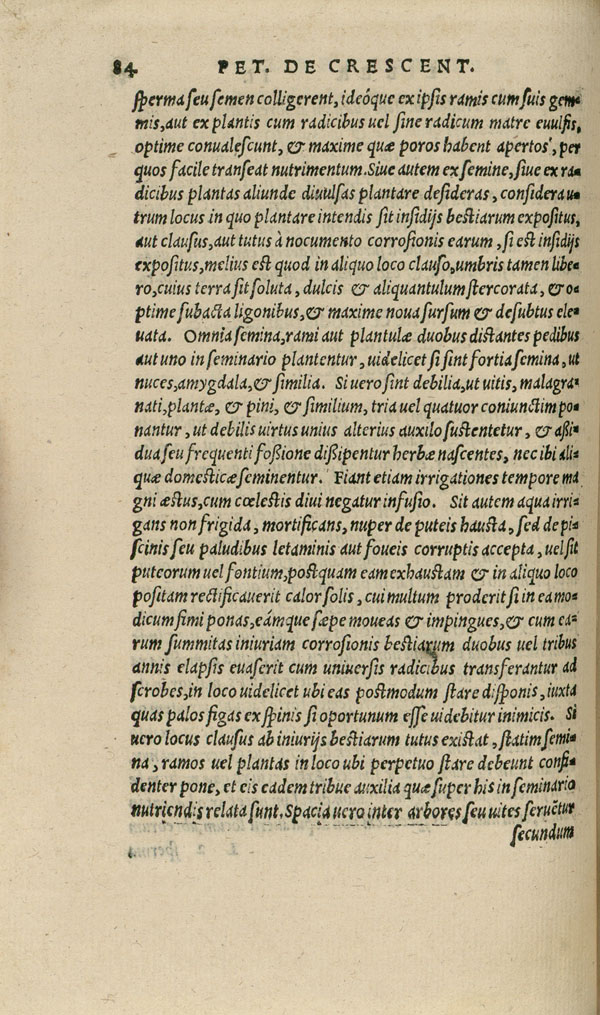 84 PET. DE CRESCENT.
sperma seu semen colligerent, ideóque ex ipsis ramis cum suis gem-
mis, aut ex plantis cum radicibus uel sine radicum matre euulsis,
optime conualescunt, & maxime quæ poros habent apertos, per
quos facile transeat nutrimentum. Siue autem ex semine, siue ex ra-
dicibus plantas aliunde diuulsas plantare desideras, considera u-
trum locus in quo plantare intendis sit insidijs bestiarum expositus,
aut clausus, aut tutus à nocumento corrosionis earum, si est insidijs
expositus, melius est quod in aliquo loco clauso, umbris tamen libe-
ro, cuius terra sit soluta, dulcis & aliquantulum stercorata, & o-
ptime subacta ligonibus, & maxime noua sursum & desubtus ele-
uata. Omnia semina, rami aut plantulæ duobus distantes pedibus
aut uno in seminario plantentur, uidelicet si sint fortia semina, ut
nuces, amygdala, & similia. Si uero sint debilia, ut uitis, malagra-
nati, plantæ, & pini, & similium, tria uel quatuor coniunctim po-
nantur, ut debilis uirtus unius alterius auxilo sustentetur, & aßi-
dua seu frequenti foßione dißipentur herbæ nascentes, nec ibi ali-
quæ domesticæ seminentur. Fiant etiam irrigationes tempore ma
gni æstus, cum cœlestis diui negatur infusio. Sit autem aqua irri-
gans non frigida, mortificans, nuper de puteis hausta, sed de pi-
scinis seu paludibus letaminis aut foueis corruptis accepta, uel sit
puteorum uel fontium, postquam eam exhaustam & in aliquo loco
positam rectificauerit calor solis, cui multum proderit si in ea mo-
dicum fimi ponas, eámque sæpe moueas & impingues, & cum ea-
rum summitas iniuriam corrosionis bestiarum duobus uel tribus
annis elapsis euaserit cum uniuersis radicibus transferantur ad
scrobes, in loco uidelicet ubi eas postmodum stare disponis, iuxta
quas palos figas ex spinis si oportunum esse uidebitur inimicis. Si
uero locus clausus ab iniurijs bestiarum tutus existat, statim semi-
na, ramos uel plantas in loco ubi perpetuo stare debeunt confi-
denter pone, et eis eadem tribue auxilia quæ super his in seminario
nutriendis relata sunt. Spacia uero inter arbores seu uites seruētur
secundum